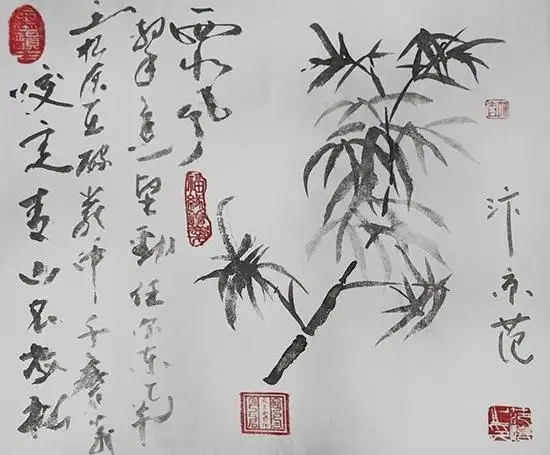 咬定青山不放松
立根原在破岩中千磨万
击还坚劲任尔东南
西北风
汴京范